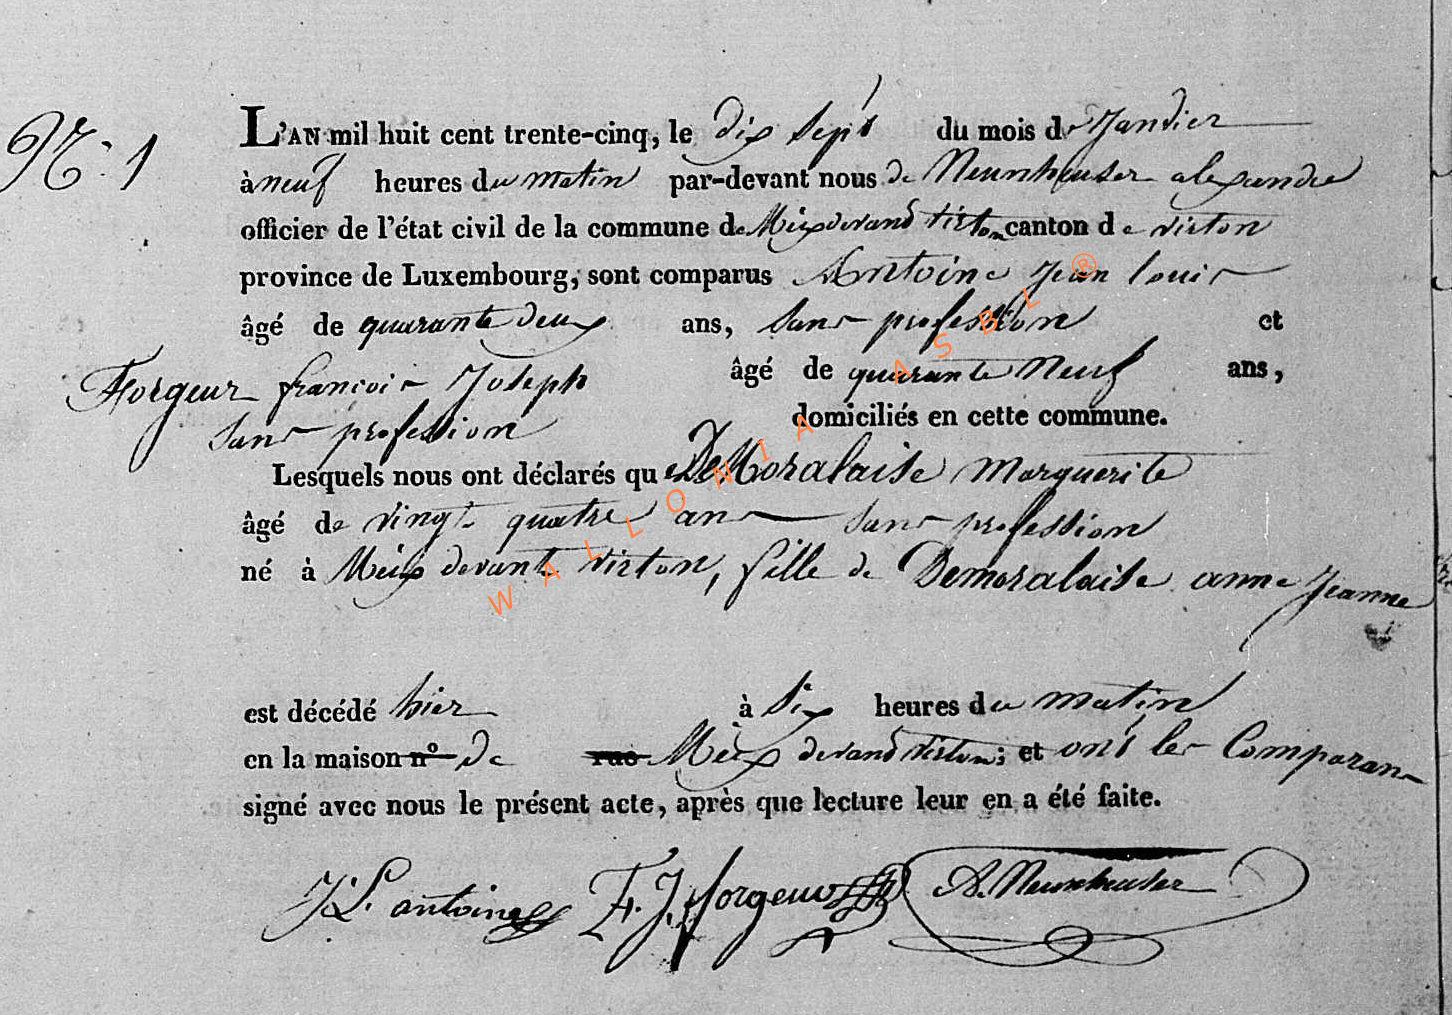 N.º 1
L'AN mil huit cent trente-cinq, le dix sept du mois de Janvier
à neuf heures du matin par-devant nous de Neunheuser alexandre
officier de l'état civil de la commune de Meix devand virton canton de virton
province de Luxembourg, sont comparus Antoine Jean louis
âgé de quarante deux ans, Sans profession et
Forgeur françois Joseph âgé de quarante neuf ans,
sans profession domiciliés en cette commune.
Lesquels nous ont déclarés que DeMoralaise Marguerite
âgé de vingt quatre ans sans profession
né à Meix devant virton, fille de Demoralaise anne Jeanne
est décédé hier à Six heures du matin
en la maison n° de rue Meix devand virton; et ont les Comparans
signé avec nous le présent acte, après que lecture leur en a été faite.
J L. antoine F. J. forgeur A. Neunheuser
WALLONIA ASBL ®